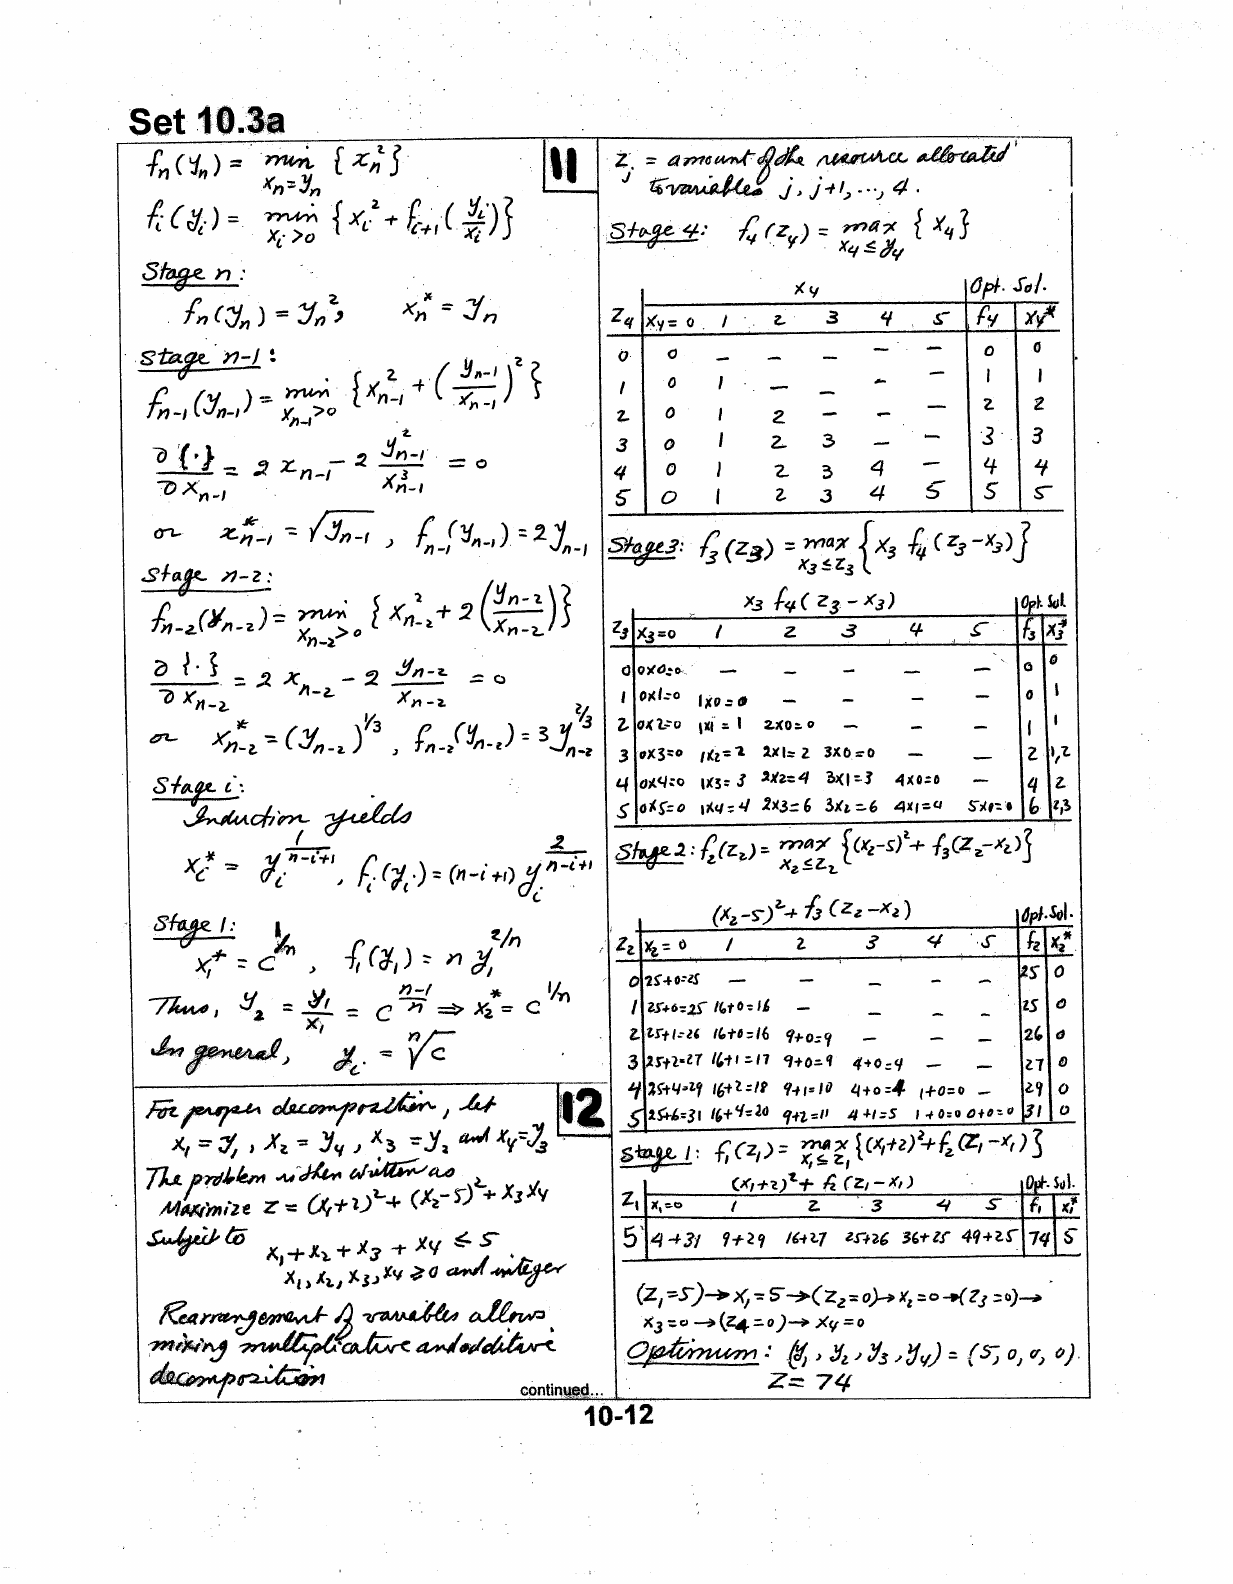 Set 10.3a
11
fn(yn) = min {xn²}
xn=yn
fi(yi) = min {xi² + fi+1(yi/xi)}
xi>0
Stage n:
fn(yn) = yn², xn* = yn
Stage n-1:
fn-1(yn-1) = min {x²n-1 + (yn-1/xn-1)²}
xn-1>0
∂{·}/∂xn-1 = 2xn-1 - 2 y²n-1/x³n-1 = 0
or x*n-1 = √yn-1, fn-1(yn-1) = 2yn-1
Stage n-2:
fn-2(yn-2) = min {x²n-2 + 2(yn-2/xn-2)}
xn-2>0
∂{·}/∂xn-2 = 2xn-2 - 2 yn-2/xn-2 = 0
or x*n-2 = (yn-2)^1/3, fn-2(yn-2) = 3y^2/3 n-2
Stage i:
Induction yields
xi* = yi^1/(n-i+1), fi(yi) = (n-i+1) yi^2/(n-i+1)
Stage 1:
x1* = c^1/n, f1(y1) = n y1^2/n
Thus, y2 = y1/x1 = c^(n-1)/n ⇒ x2* = c^1/n
In general, yi = ⁿ√c
12
For proper decomposition, let
x1 = y1, x2 = y4, x3 = y2 and x4 = y3
The problem is then written as
Maximize z = (x1+2)² + (x2-5)² + x3x4
Subject to
x1 + x2 + x3 + x4 ≤ 5
x1, x2, x3, x4 ≥ 0 and integer
Rearrangement of variables allows
mixing multiplicative and additive
decomposition
continued...
zj = amount of the resource allocated
to variables j, j+1, ..., 4.
Stage 4: f4(z4) = max {x4}
x4≤y4
x4 Opt. Sol.
z4 x4=0 1 2 3 4 5 f4 x4*
0 0 — — — — — 0 0
1 0 1 — — - — 1 1
2 0 1 2 — — — 2 2
3 0 1 2 3 — — 3 3
4 0 1 2 3 4 — 4 4
5 0 1 2 3 4 5 5 5
Stage 3: f3(z3) = max {x3 f4(z3-x3)}
x3≤z3
x3 f4(z3-x3) Opt. Sol.
z3 x3=0 1 2 3 4 5 f3 x3*
0 0x0=0 — — — — — 0 0
1 0x1=0 1x0=0 — — — — 0 1
2 0x2=0 1x1=1 2x0=0 — — — 1 1
3 0x3=0 1x2=2 2x1=2 3x0=0 — — 2 1,2
4 0x4=0 1x3=3 2x2=4 3x1=3 4x0=0 — 4 2
5 0x5=0 1x4=4 2x3=6 3x2=6 4x1=4 5x0=0 6 2,3
Stage 2: f2(z2) = max {(x2-5)² + f3(z2-x2)}
x2≤z2
(x2-5)² + f3(z2-x2) Opt. Sol.
z2 x2=0 1 2 3 4 5 f2 x2*
0 25+0=25 — — — — — 25 0
1 25+0=25 16+0=16 — — — — 25 0
2 25+1=26 16+0=16 9+0=9 — — — 26 0
3 25+2=27 16+1=17 9+0=9 4+0=4 — — 27 0
4 25+4=29 16+2=18 9+1=10 4+0=4 1+0=0 — 29 0
5 25+6=31 16+4=20 9+2=11 4+1=5 1+0=0 0+0=0 31 0
Stage 1: f1(z1) = max {(x1+2)² + f2(z1-x1)}
x1≤z1
(x1+2)² + f2(z1-x1) Opt. Sol.
z1 x1=0 1 2 3 4 5 f1 x1*
5 4+31 9+29 16+27 25+26 36+25 49+25 74 5
(z1=5)→x1=5→(z2=0)→x2=0→(z3=0)→
x3=0→(z4=0)→x4=0
Optimum: (y1, y2, y3, y4) = (5, 0, 0, 0)
z = 74
10-12